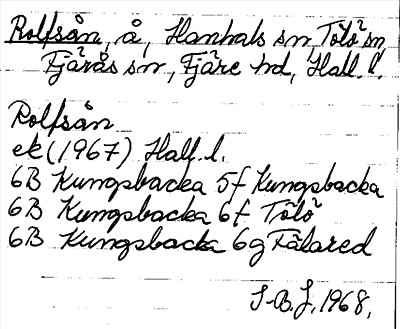 Rolfsån, å, Hanhals sn, Tölö sn,
Fjärås sn, Fjäre hd, Hall. l.
Rolfsån
ek (1967) Hall. l.
6B Kungsbacka 5f Kungsbacka
6B Kungsbacka 6f Tölö
6B Kungsbacka 6g Fälared
S-B.J. 1968.